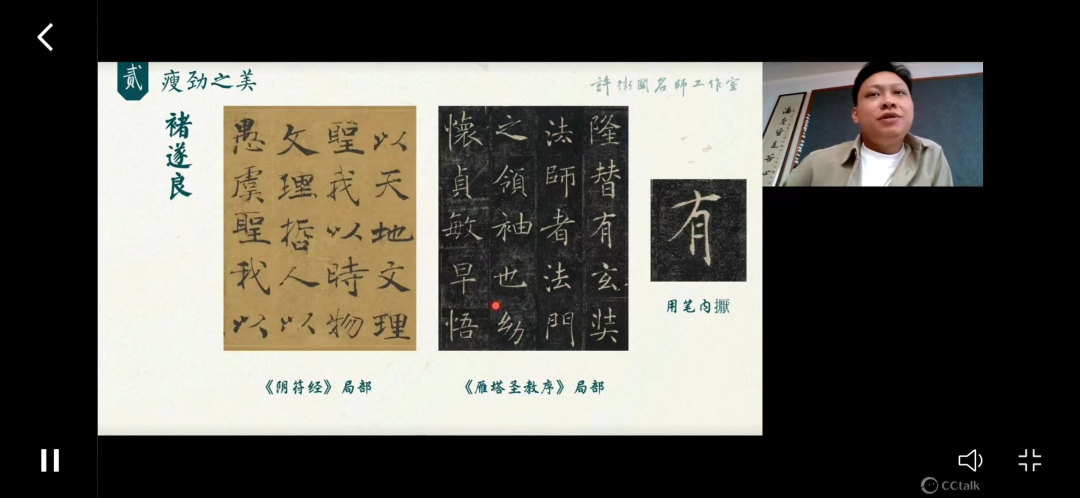 贰 瘦劲之美
許衛國名师工作室
褚遂良
以天地文理
聖我以時物
文理哲人以
愚虞聖我以
隆替有玄奘
法師者法門
之領袖也幼
懷貞敏早悟
有
用笔内擫
《阴符经》局部
《雁塔圣教序》局部
CCtalk